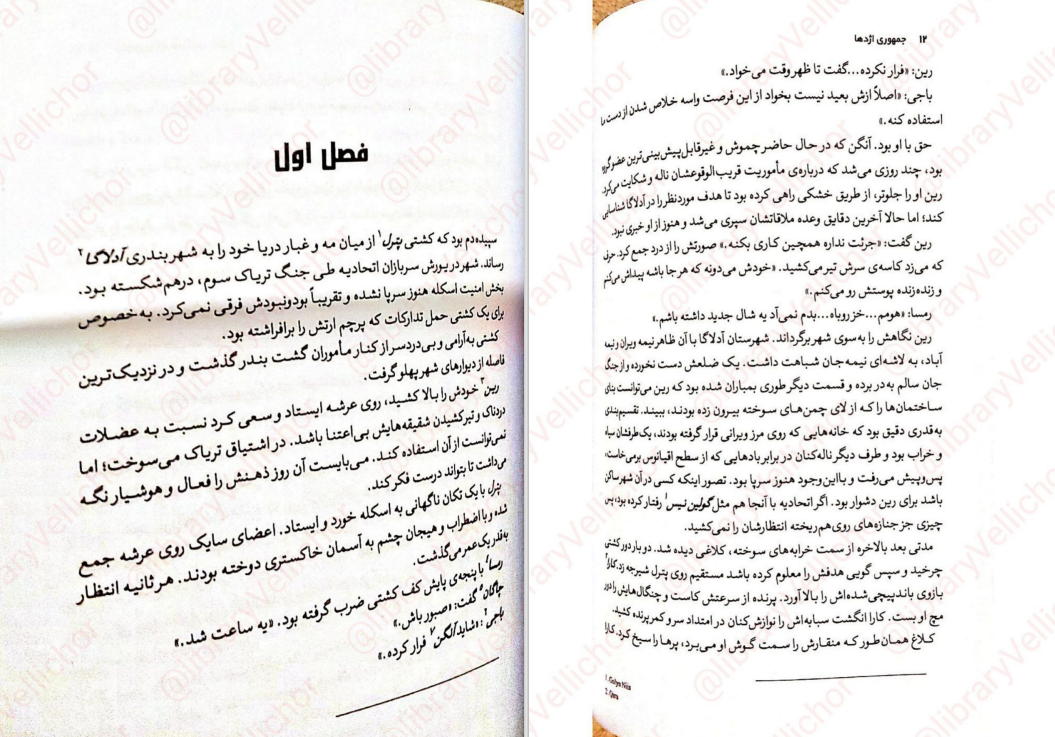 فصل اول
سپیده‌دم بود که کشتی پترل¹ از میان مه و غبار دریا خود را به شهر بندری آدلاگا²
رساند. شهر در یورش سربازان اتحادیه طی جنگ تریاک سوم، درهم‌شکسته بود.
بخش امنیت اسکله هنوز سرپا نشده و تقریباً بودونبودش فرقی نمی‌کرد. به‌خصوص
برای یک کشتی حمل تدارکات که پرچم ارتش را برافراشته بود.
کشتی به‌آرامی و بی‌دردسر از کنار مأموران گشت بندر گذشت و در نزدیک‌ترین
فاصله از دیوارهای شهر پهلو گرفت.
رین³ خودش را بالا کشید، روی عرشه ایستاد و سعی کرد نسبت به عضلات
دردناک و تیرکشیدن شقیقه‌هایش بی‌اعتنا باشد. در اشتیاق تریاک می‌سوخت؛ اما
نمی‌توانست از آن استفاده کند. می‌بایست آن روز ذهنش را فعال و هوشیار نگه
می‌داشت تا بتواند درست فکر کند.
پترل با یک تکان ناگهانی به اسکله خورد و ایستاد. اعضای سایک روی عرشه جمع
شده و با اضطراب و هیجان چشم به آسمان خاکستری دوخته بودند. هر ثانیه انتظار
به‌قدر یک عمر می‌گذشت.
رمسا⁴ با پنجه‌ی پایش کف کشتی ضرب گرفته بود. «یه ساعت شد.»
چاگان⁵ گفت: «صبور باش.»
باجی⁶: «شاید آنگن⁷ فرار کرده.»
۱۲ جمهوری اژدها
رین: «فرار نکرده...گفت تا ظهر وقت می‌خواد.»
باجی: «اصلاً ازش بعید نیست بخواد از این فرصت واسه خلاص شدن از دست ما
استفاده کنه.»
حق با او بود. آنگن که در حال حاضر چموش و غیرقابل‌پیش‌بینی‌ترین عضو گروه
بود، چند روزی می‌شد که درباره‌ی مأموریت قریب‌الوقوعشان ناله و شکایت می‌کرد.
رین او را جلوتر، از طریق خشکی راهی کرده بود تا هدف موردنظر را در آدلاگا شناسایی
کند؛ اما حالا آخرین دقایق وعده ملاقاتشان سپری می‌شد و هنوز از او خبری نبود.
رین گفت: «جرئت نداره همچین کاری بکنه.» صورتش را از درد جمع کرد. حرف
که می‌زد کاسه‌ی سرش تیر می‌کشید. «خودش می‌دونه که هر جا باشه پیداش می‌کنم
و زنده‌زنده پوستش رو می‌کنم.»
رمسا: «هومم...خز روباه...بدم نمی‌آد یه شال جدید داشته باشم.»
رین نگاهش را به‌سوی شهر برگرداند. شهرستان آدلاگا با آن ظاهر نیمه ویران و نیمه
آباد، به لاشه‌ای نیمه‌جان شباهت داشت. یک ضلعش دست نخورده و از جنگ
جان سالم به‌در برده و قسمت دیگر طوری بمباران شده بود که رین می‌توانست بنای
ساختمان‌ها را که از لای چمن‌های سوخته بیرون زده بودند، ببیند. تقسیم‌بندی
به‌قدری دقیق بود که خانه‌هایی که روی مرز ویرانی قرار گرفته بودند، یک‌طرفشان سیاه
و خراب بود و طرف دیگر ناله‌کنان در برابر بادهایی که از سطح اقیانوس برمی‌خاست،
پس‌وپیش می‌رفت و بااین‌وجود هنوز سرپا بود. تصور اینکه کسی در آن شهر ساکن
باشد برای رین دشوار بود. اگر اتحادیه با آنجا هم مثل گولین نیس¹ رفتار کرده بود، پس
چیزی جز جنازه‌های روی‌هم‌ریخته انتظارشان را نمی‌کشید.
مدتی بعد بالاخره از سمت خرابه‌های سوخته، کلاغی دیده شد. دو بار دور کشتی
چرخید و سپس گویی هدفش را معلوم کرده باشد مستقیم روی پترل شیرجه زد. کارا²
بازوی باندپیچی‌شده‌اش را بالا آورد. پرنده از سرعتش کاست و چنگال‌هایش را دور
مچ او بست. کارا انگشت سبابه‌اش را نوازش‌کنان در امتداد سر و کمر پرنده کشید.
کلاغ همان‌طور که منقارش را سمت گوش او می‌برد، پرها را سیخ کرد. کارا
1. Golyn Niis
2. Qara
@libraryVellichor